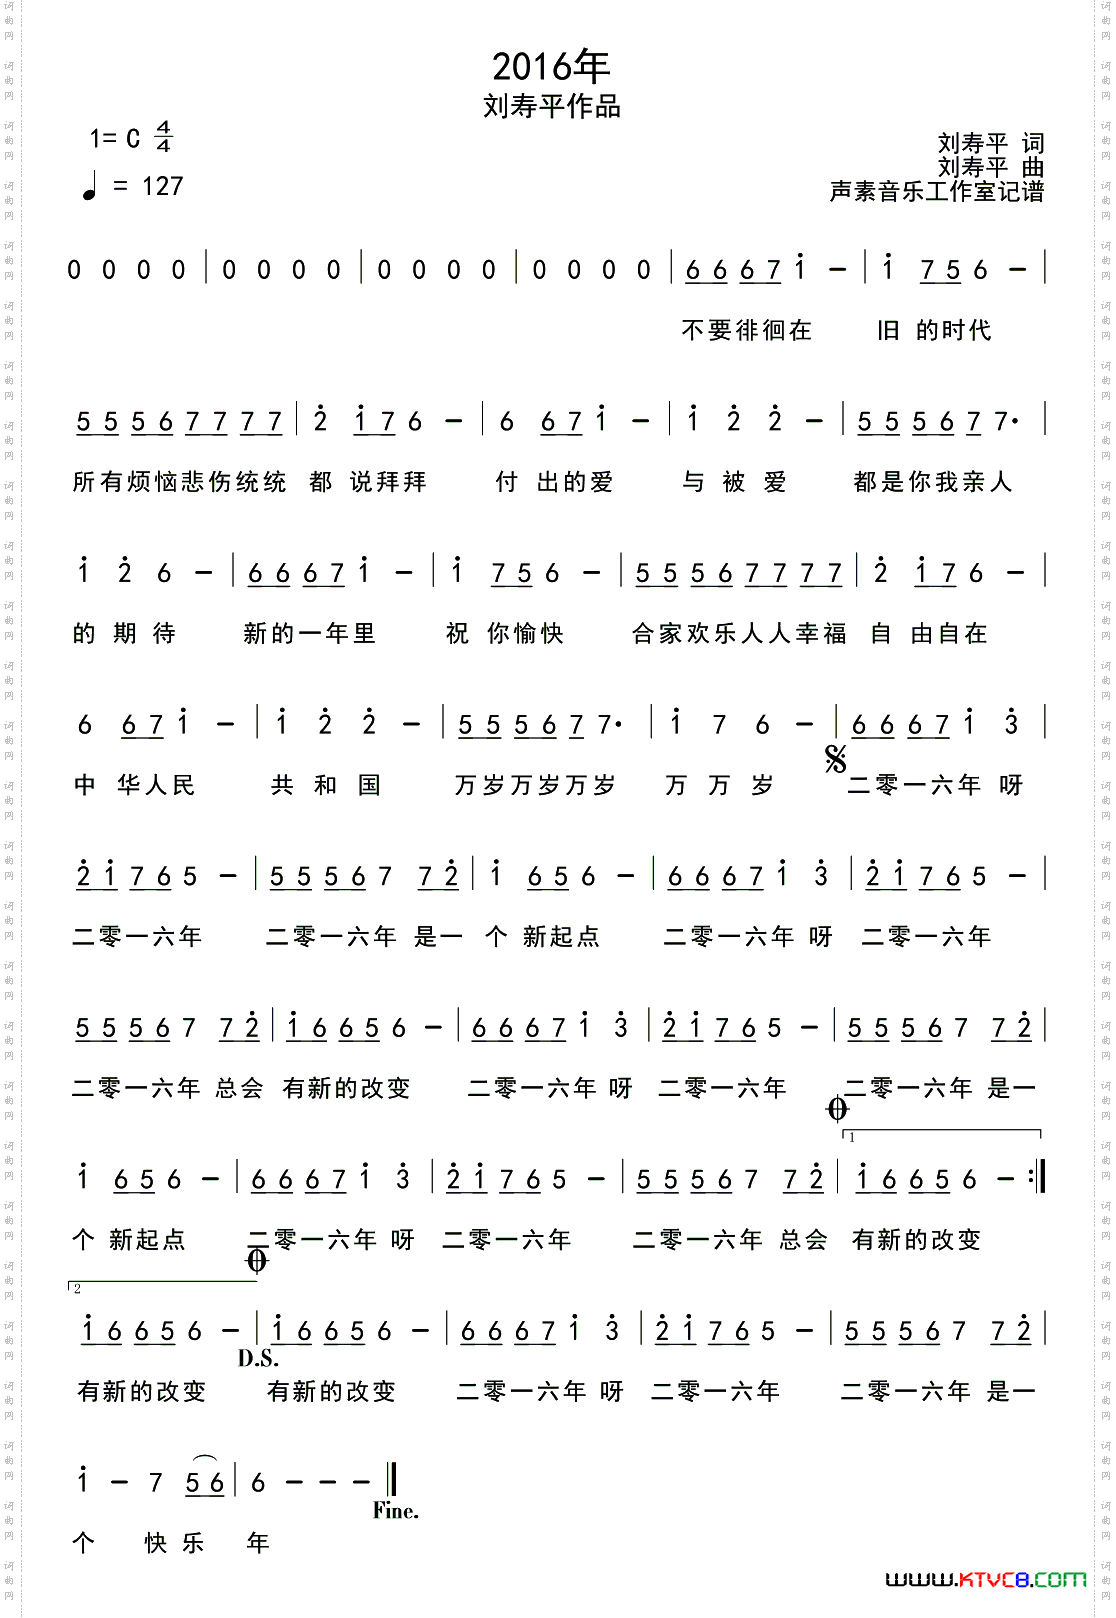 2016年
刘寿平作品
1= C 4/4
刘寿平 词
刘寿平 曲
♩ = 127
声素音乐工作室记谱
0 0 0 0 | 0 0 0 0 | 0 0 0 0 | 0 0 0 0 | 6 6 6 7 i̇ – | i̇ 7 5 6 – |
不要徘徊在 旧 的时代
5 5 5 6 7 7 7 7 | 2̇ i̇ 7 6 – | 6 6 7 i̇ – | i̇ 2̇ 2̇ – | 5 5 5 6 7 7· |
所有烦恼悲伤统统 都 说拜拜 付 出的爱 与 被 爱 都是你我亲人
i̇ 2̇ 6 – | 6 6 6 7 i̇ – | i̇ 7 5 6 – | 5 5 5 6 7 7 7 7 | 2̇ i̇ 7 6 – |
的 期 待 新的一年里 祝 你愉快 合家欢乐人人幸福 自 由自在
6 6 7 i̇ – | i̇ 2̇ 2̇ – | 5 5 5 6 7 7· | i̇ 7 6 – | 6 6 6 7 i̇ 3̇ |
中 华人民 共 和 国 万岁万岁万岁 万 万 岁 二零一六年 呀
2̇ i̇ 7 6 5 – | 5 5 5 6 7 7 2̇ | i̇ 6 5 6 – | 6 6 6 7 i̇ 3̇ | 2̇ i̇ 7 6 5 – |
二零一六年 二零一六年 是一 个 新起点 二零一六年 呀 二零一六年
5 5 5 6 7 7 2̇ | i̇ 6 6 5 6 – | 6 6 6 7 i̇ 3̇ | 2̇ i̇ 7 6 5 – | 5 5 5 6 7 7 2̇ |
二零一六年 总会 有新的改变 二零一六年 呀 二零一六年 二零一六年 是一
1
i̇ 6 5 6 – | 6 6 6 7 i̇ 3̇ | 2̇ i̇ 7 6 5 – | 5 5 5 6 7 7 2̇ | i̇ 6 6 5 6 – :|
个 新起点 二零一六年 呀 二零一六年 二零一六年 总会 有新的改变
2
i̇ 6 6 5 6 – | i̇ 6 6 5 6 – | 6 6 6 7 i̇ 3̇ | 2̇ i̇ 7 6 5 – | 5 5 5 6 7 7 2̇ |
D.S.
有新的改变 有新的改变 二零一六年 呀 二零一六年 二零一六年 是一
i̇ – 7 5 6 | 6 – – – |
Fine.
个 快 乐 年
www.KTVC8.COM
词曲网